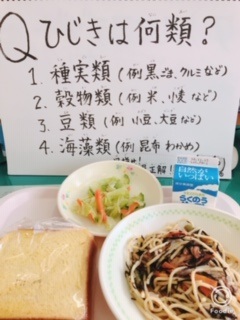 Qひじきは何類？
1. 種実類 (例 黒ごま、クルミなど)
2. 穀物類 (例 米、小麦など)
3. 豆類 (例 小豆、大豆など)
4. 海藻類 (例 昆布 わかめ)
正解！
らくのう
Foodie